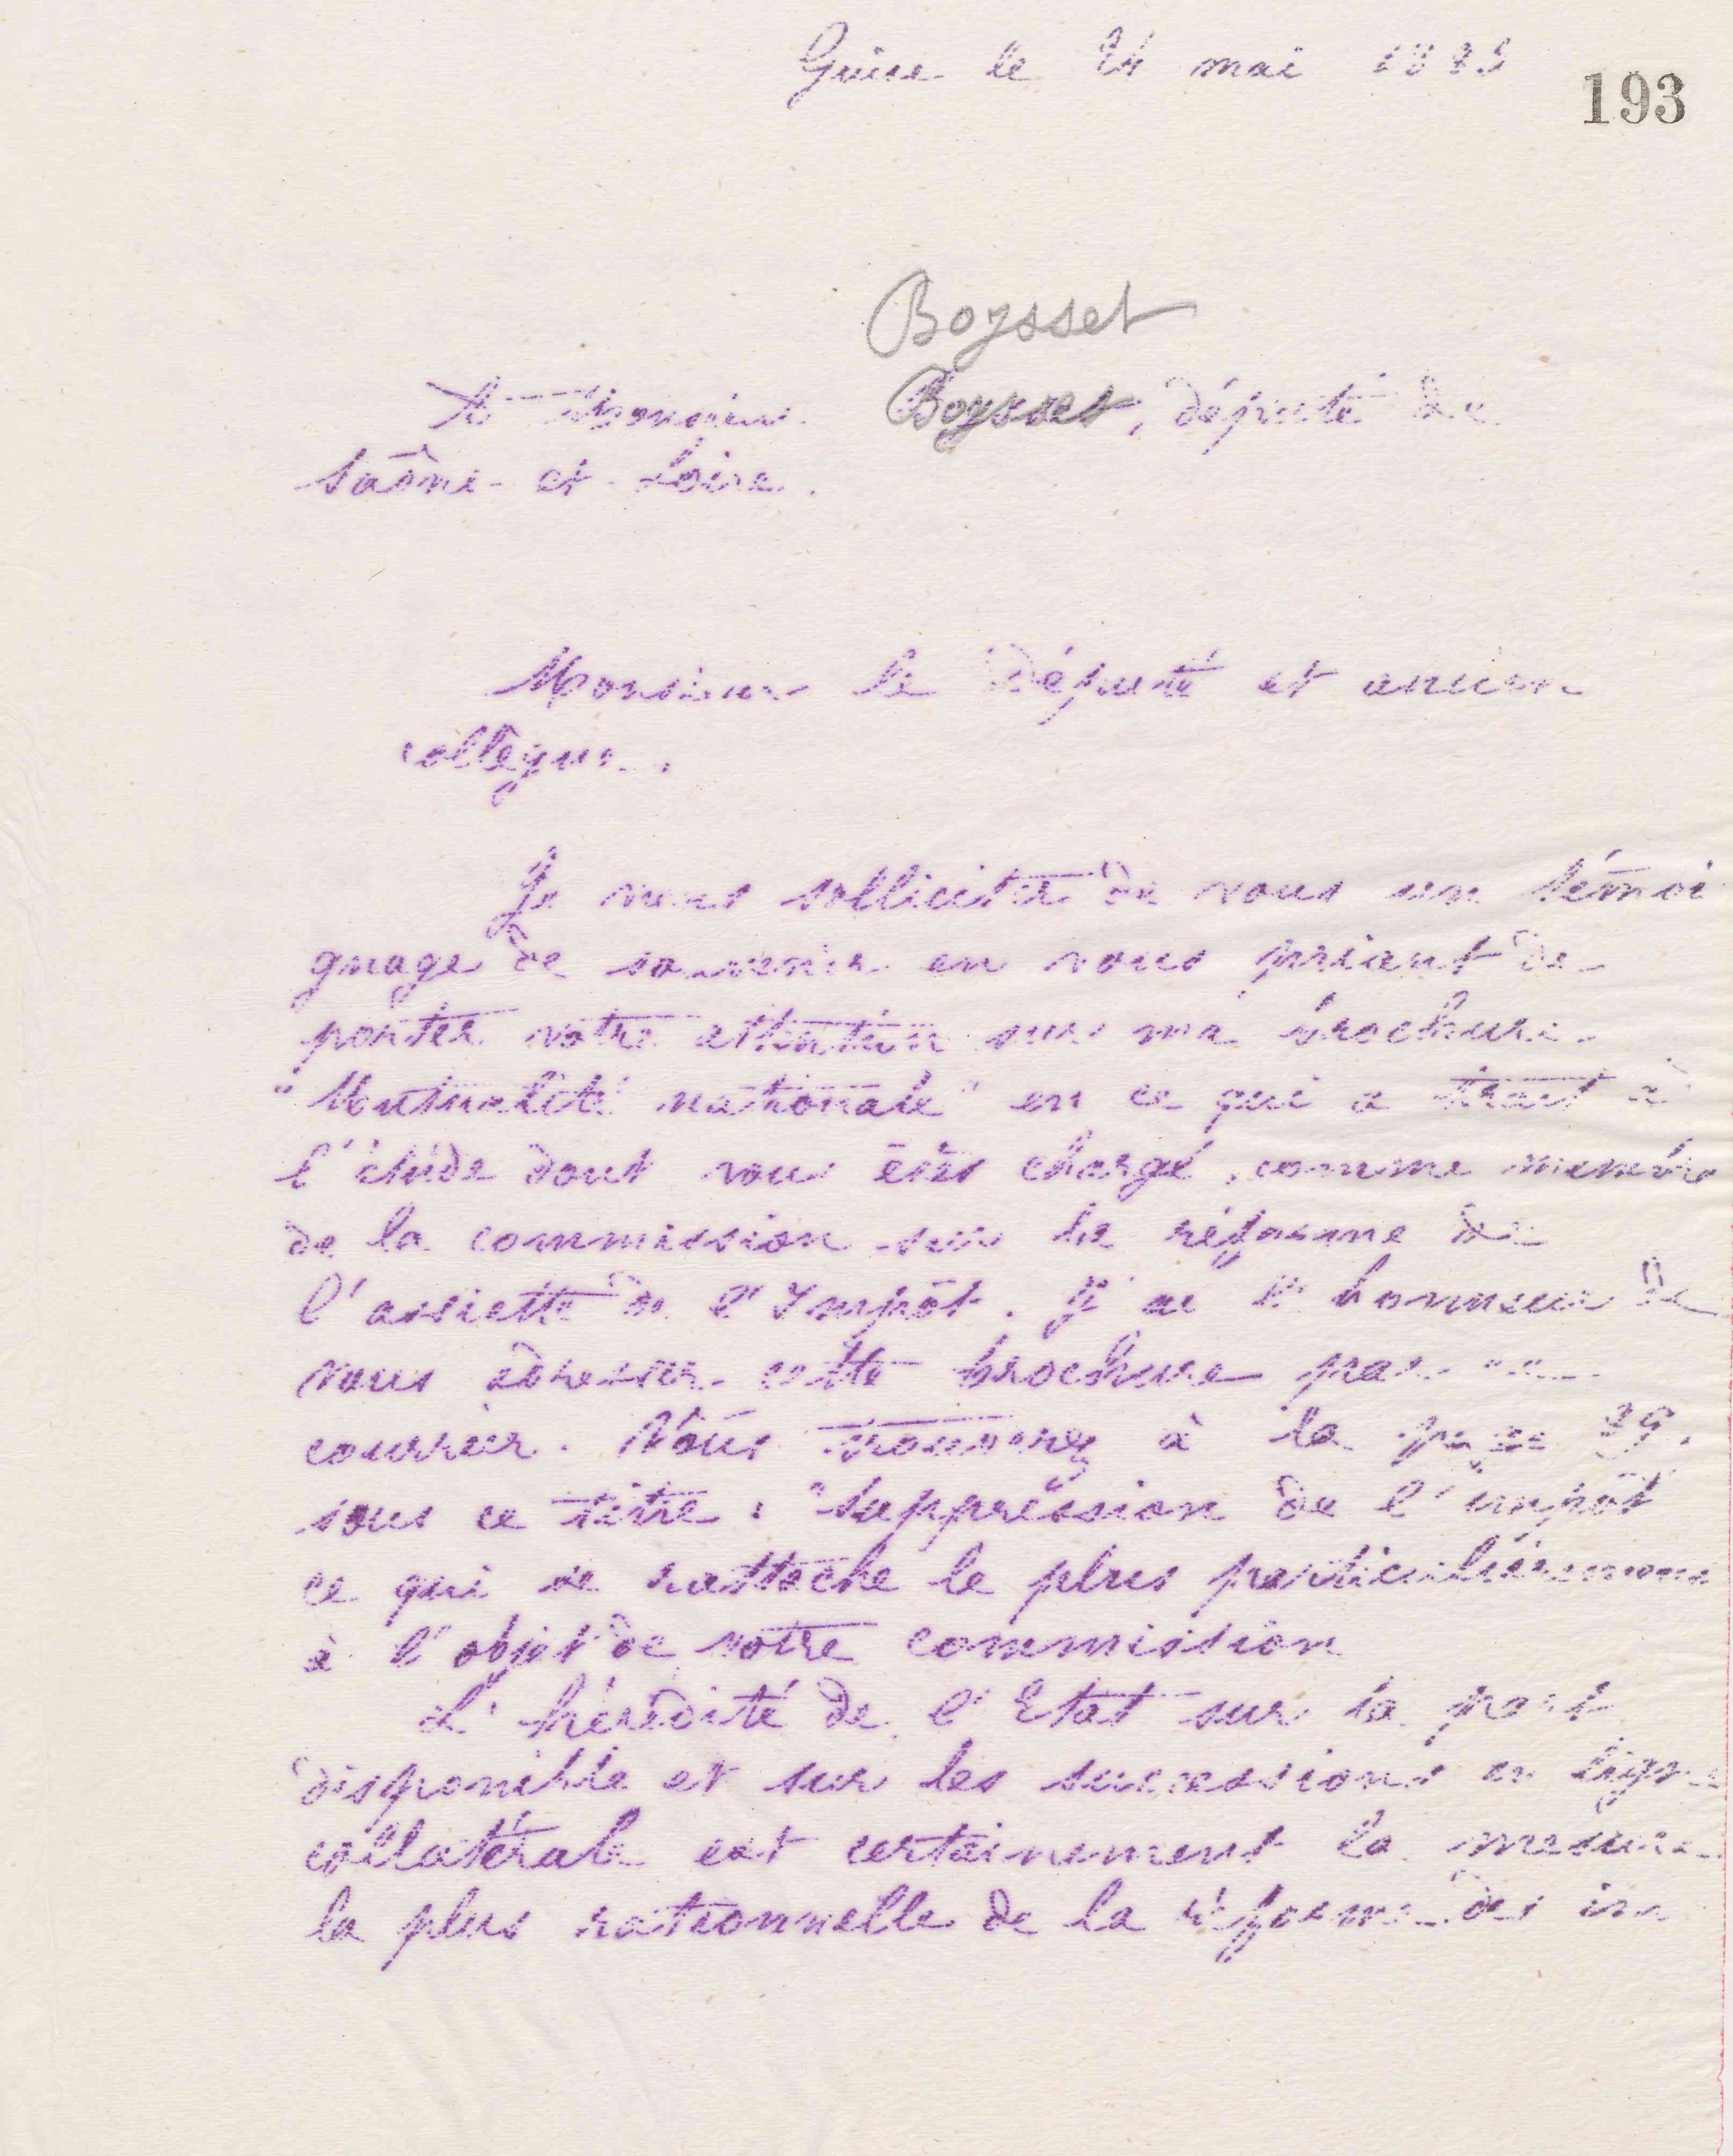 Guise le 24 mai 1883
193
Boysset
A Monsieur Boysset, député de
Saône-et-Loire.
Monsieur le Député et ancien
collègue.
Je viens solliciter de vous un témoi
gnage de souvenir en vous priant de
porter votre attention sur ma brochure
"Mutualité nationale" en ce qui a trait à
l'étude dont vous êtes chargé, comme membre
de la commission sur la réforme de
l'assiette de l'Impôt. J'ai l'honneur de
vous adresser cette brochure par ce
courrier. Vous trouverez à la page 29,
sous ce titre : "Suppression de l'impôt
ce qui se rattache le plus particulièrement
à l'objet de votre commission
L'hérédité de l'Etat sur la part
disponible et sur les successions en ligne
collatérale est certainement la mesure
la plus rationnelle de la réforme des im